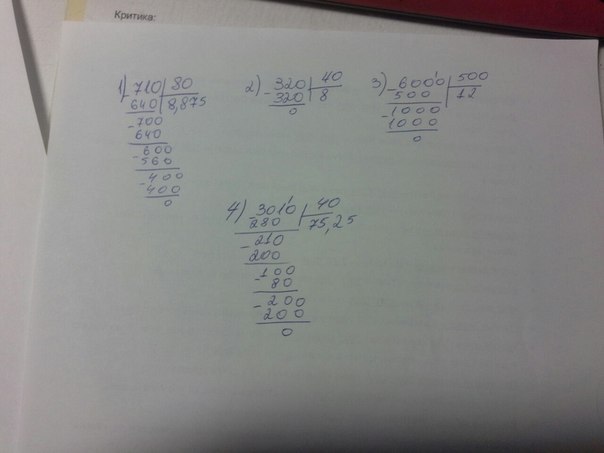 Критика:
1) - 710 | 80
640 | 8,875
- 700
640
- 600
560
- 400
400
0
2) - 320 | 40
320 | 8
0
3) - 6000 | 500
500 | 12
- 1000
1000
0
4) - 3010 | 40
280 | 75,25
- 210
200
- 100
80
- 200
200
0